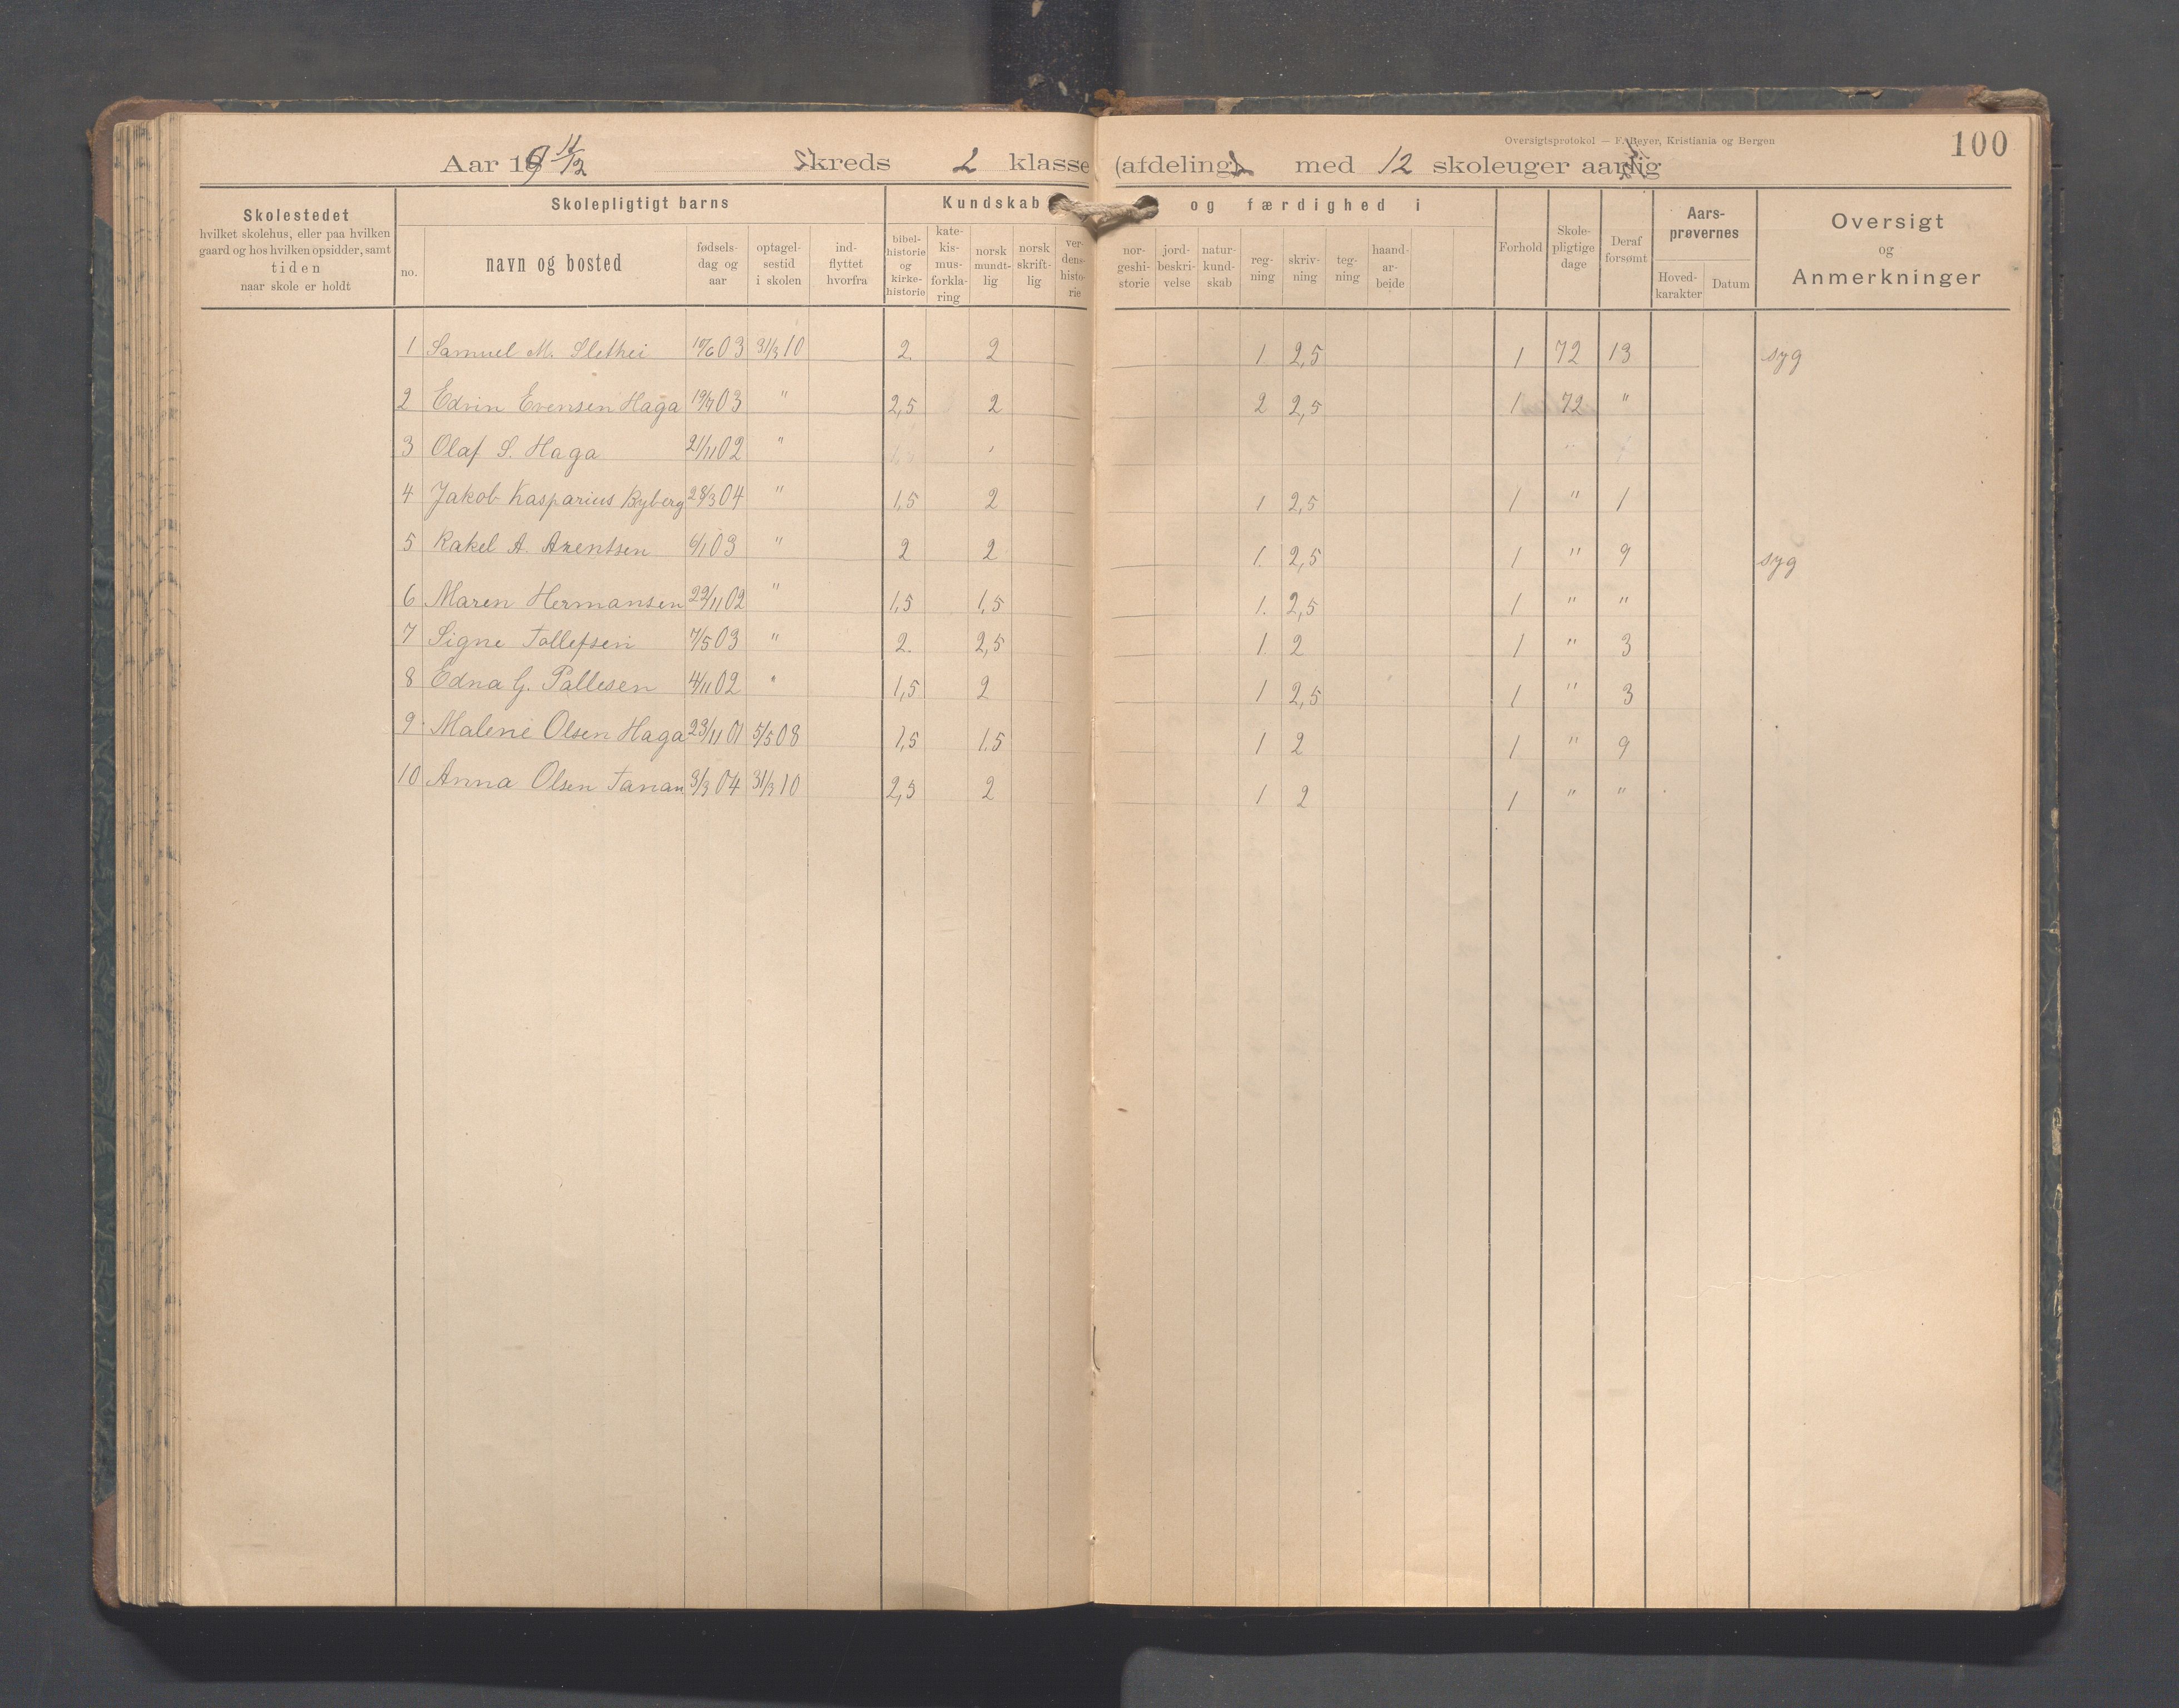 Oversigtsprotokol — F. Beyer, Kristiania og Bergen
100
Aar 19 11/12 kreds 2 klasse (afdeling) med 12 skoleuger aarlig
Skolestedet
hvilket skolehus, eller paa hvilken
gaard og hos hvilken opsidder, samt
tiden
naar skole er holdt
Skolepligtigt barns
no.
navn og bosted
fødsels-
dag og
aar
optagel-
sestid
i skolen
ind-
flyttet
hvorfra
Kundskab og færdighed i
bibel-
historie
og
kirke-
historie
kate-
kis-
mus-
forkla-
ring
norsk
mundt-
lig
norsk
skrift-
lig
ver-
dens-
histo-
rie
nor-
geshi-
storie
jord-
beskri-
velse
natur-
kund-
skab
reg-
ning
skriv-
ning
teg-
ning
haand-
ar-
beide
Forhold
Skole-
pligtige
dage
Deraf
forsømt
Aars-
prøvernes
Hoved-
karakter
Datum
Oversigt
og
Anmerkninger
1 Samuel M. Slethei 19/6 03 31/3 10 2 2 1 2,5 1 72 13 syg
2 Edvin Evensen Haga 19/7 03 " 2,5 2 2 2,5 1 72 "
3 Olaf S. Haga 21/11 02 "
4 Jakob Kasparius Ryberg 28/3 04 " 1,5 2 1 2,5 1 " 1
5 Rakel A. Arentsen 6/1 03 " 2 2 1. 2,5 1 " 9 syg
6 Maren Hermansen 22/11 02 " 1,5 1,5 1. 2,5 1 " "
7 Signe Tollefsen 7/5 03 " 2. 2,5 1. 2 1 " 3
8 Edna G. Pallesen 4/11 02 " 1,5 2 1 2,5 1 " 3
9 Malene Olsen Haga 23/11 01 5/5 08 1,5 1.5 1 2 1 " 9
10 Anna Olsen Tanan 3/3 04 31/3 10 2,5 2 1 2 1 " "